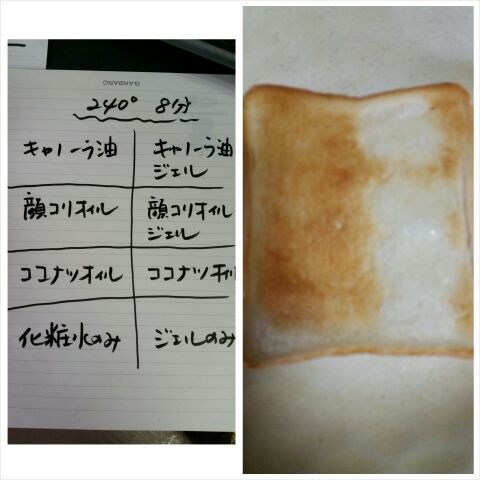 GANBARO
240° 8分
キャノーラ油 キャノーラ油
ジェル
顔コリオイル 顔コリオイル
ジェル
ココナツオイル ココナツオイル
化粧水のみ ジェルのみ